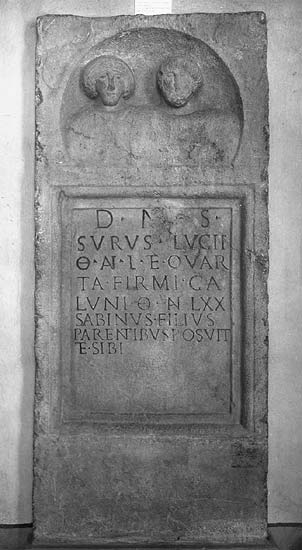 D · M · S ·
SURUS · LUCII
Θ · AN · L · E · QUAR
TA · FIRMI · CA
LUNI · Θ · N · LXX
SABINUS · FILIUS
PARENTIBUS · POSUIT
E · SIBI